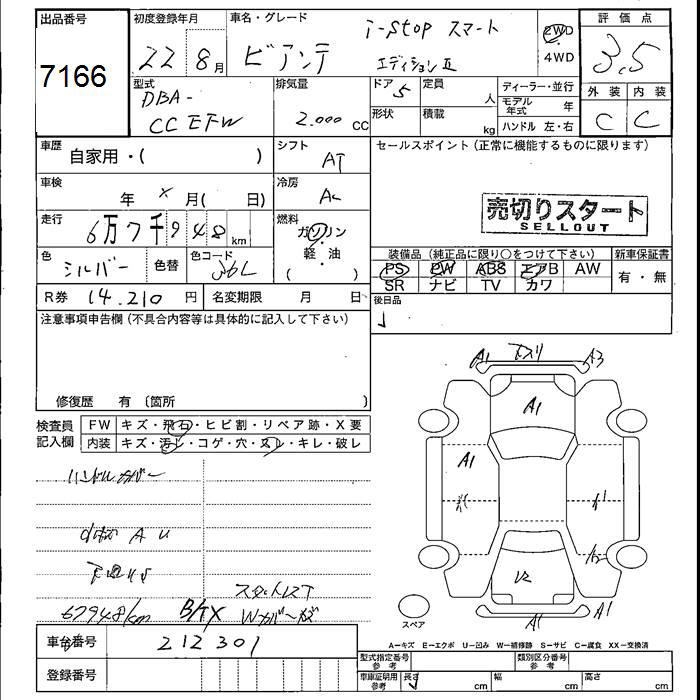 出品番号
7166
初度登録年月
22 8月
車名・グレード
ビアンテ
i-stop スマート
エディションⅡ
2WD
・
4WD
評価点
3.5
外装 内装
C C
型式
DBA-
CCEFW
排気量
2.000 cc
ドア 5
定員 人
形状
積載 kg
ディーラー・並行
モデル年式 年
ハンドル 左・右
車歴
自家用・( )
シフト
AT
セールスポイント (正常に機能するものに限ります)
車検
年 × 月( 日)
冷房
AC
売切りスタート
SELLOUT
走行
6万7千948km
燃料
ガソリン
・
軽・油
( )
色
シルバー
色替
色コード
36L
装備品 (純正品に限り○をつけて下さい)
PS PW ABS エアB AW
SR ナビ TV カワ
新車保証書
有・無
R券 14.210円
名変期限 月 日
後日品
注意事項申告欄 (不具合内容等は具体的に記入して下さい)
修復歴 有 〔箇所 〕
検査員
記入欄
FW キズ・飛石・ヒビ割・リペア跡・X要
内装 キズ・汚レ・コゲ・穴・スレ・キレ・破レ
ハンドルカバー
A U
67948km
Wカバーキズ
車台番号 212301
登録番号
A1 スリ A3
A1
A1
A1
A1
スペア
A=キズ E=エクボ U=凹み W=補修跡 S=サビ C=腐食 XX=交換済
型式指定番号
参考
類別区分番号
参考
車庫証明用
参考
長さ cm
幅 cm
高さ cm